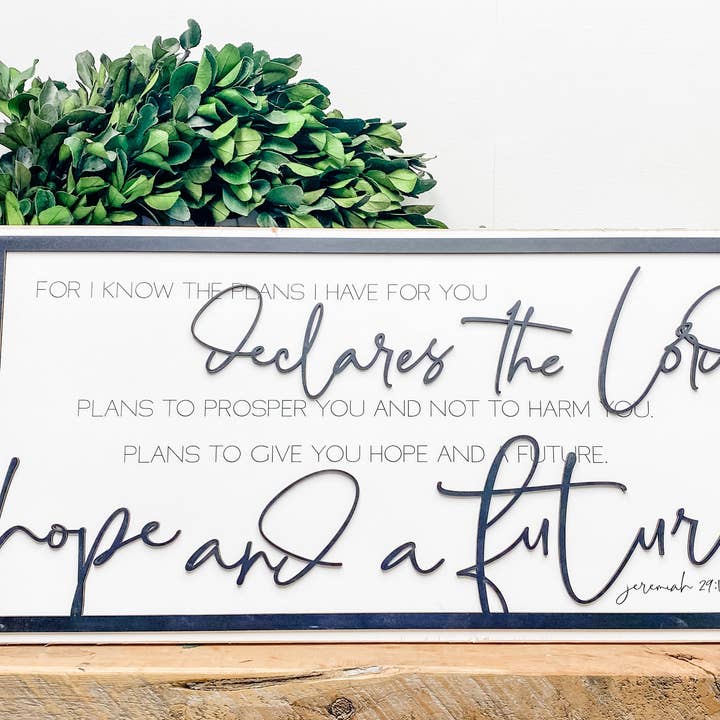 FOR I KNOW THE PLANS I HAVE FOR YOU
declares the Lord
PLANS TO PROSPER YOU AND NOT TO HARM YOU.
PLANS TO GIVE YOU HOPE AND A FUTURE.
hope and a futur
jeremiah 29:1